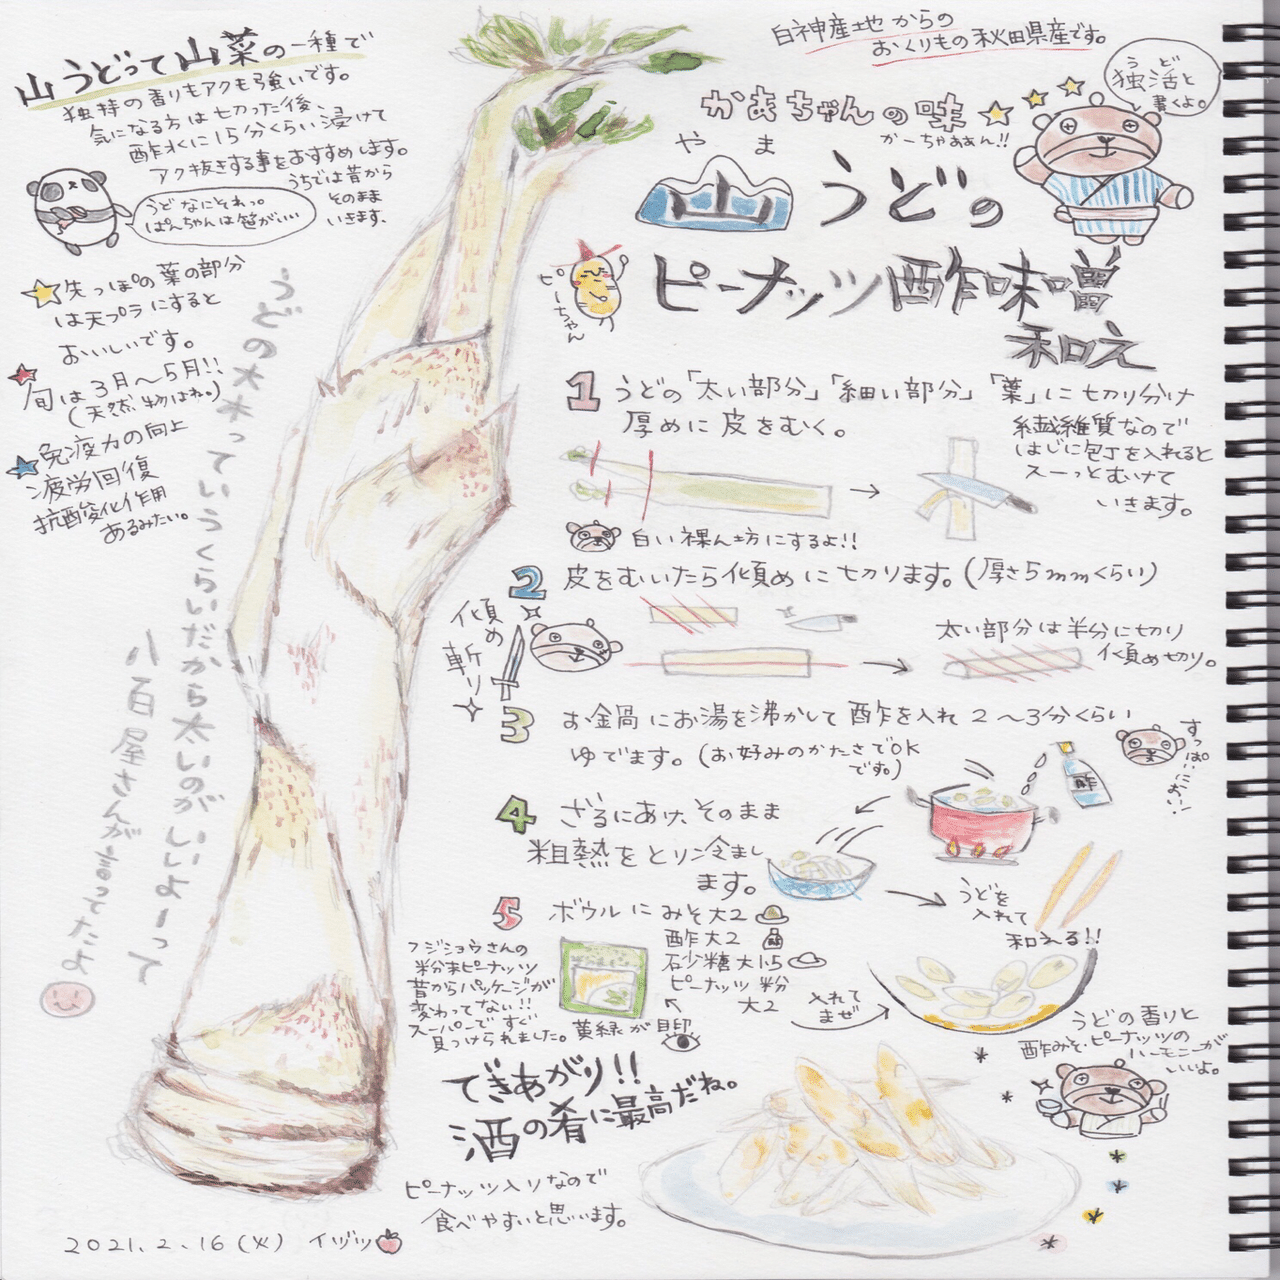 山うどって山菜の一種で
独特の香りもアクも強いです。
気になる方は切った後、
酢水に15分くらい浸けて
アク抜きする事をおすすめします。
うちでは昔から
そのまま
いきます。
うどなにそれっ。
ぱんちゃんは笹がいい
先っぽの葉の部分
は天プラにすると
おいしいです。
旬は3月〜5月!!
(天然物はね。)
免疫力の向上
疲労回復
抗酸化作用
あるみたい。
うどの大木っていうくらいだから太いのがいいよーって
八百屋さんが言ってたよ
白神産地からの
おくりもの秋田県産です。
かあちゃんの味
かーちゃぁぁん!!
うど
独活と
書くよ。
やま
山うどの
ピーナッツ酢味噌
和え
ピーちゃん
1 うどの「太い部分」「細い部分」「葉」に切り分け
厚めに皮をむく。
繊維質なので
はじに包丁を入れると
スーっとむけて
いきます。
白い裸ん坊にするよ!!
2 皮をむいたら傾めに切ります。(厚さ5mmくらい)
傾め
斬り
太い部分は半分に切り
傾め切り。
3 お金鍋にお湯を沸かして酢を入れ2〜3分くらい
ゆでます。(お好みのかたさでOK
です。)
酢
すっぱいにおい!
4 ざるにあけ、そのまま
粗熱をとり冷まし
ます。
うどを
入れて
和える!!
5 ボウルにみそ大2
酢大2
砂糖大1.5
ピーナッツ粉
大2
入れて
まぜ
フジショウさんの
粉末ピーナッツ
昔からパッケージが
変わってない!!
スーパーですぐ
見つけられました。
黄緑が目印
うどの香りと
酢みそ・ピーナッツの
ハーモニーが
いいよ。
できあがり!!
酒の肴に最高だね。
ピーナッツ入りなので
食べやすいと思います。
2021.2.16(火) イヅツ